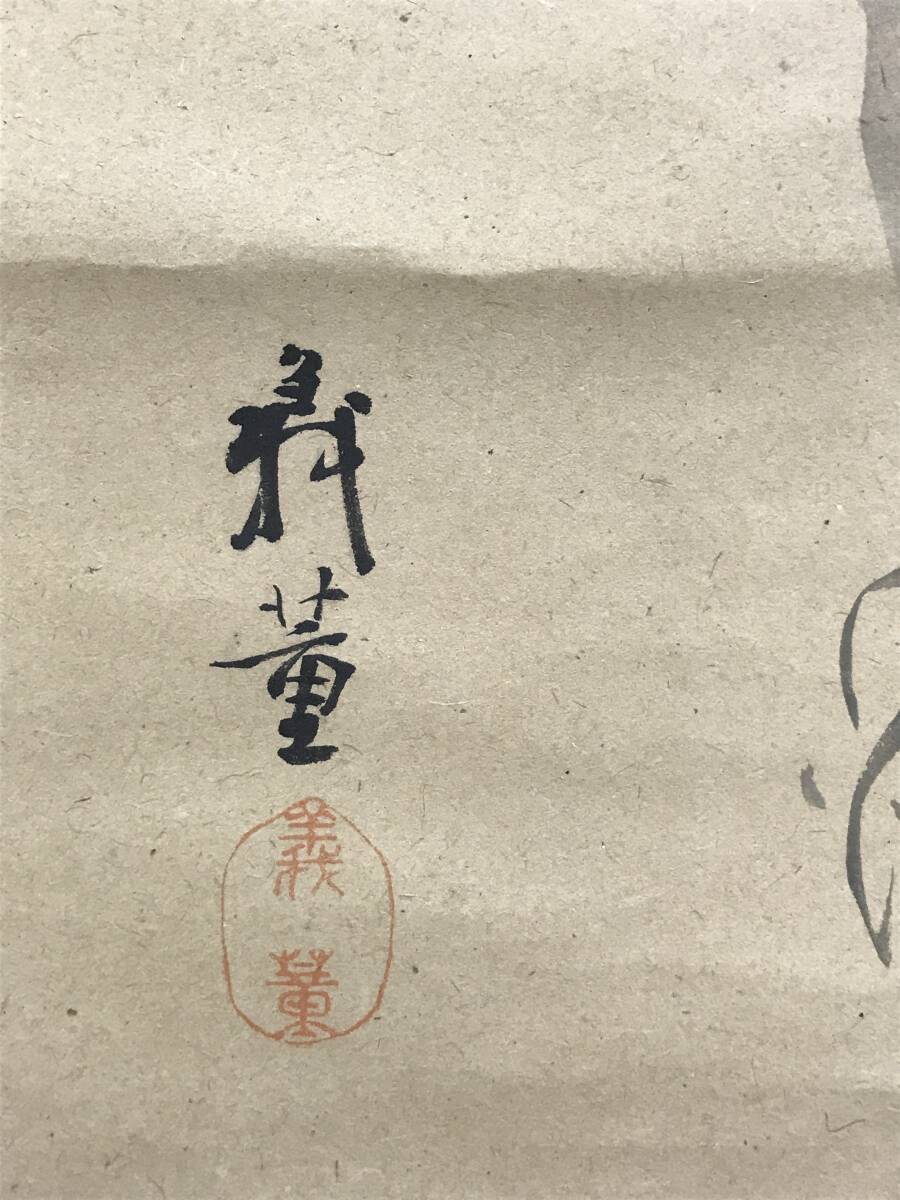 義董
義董